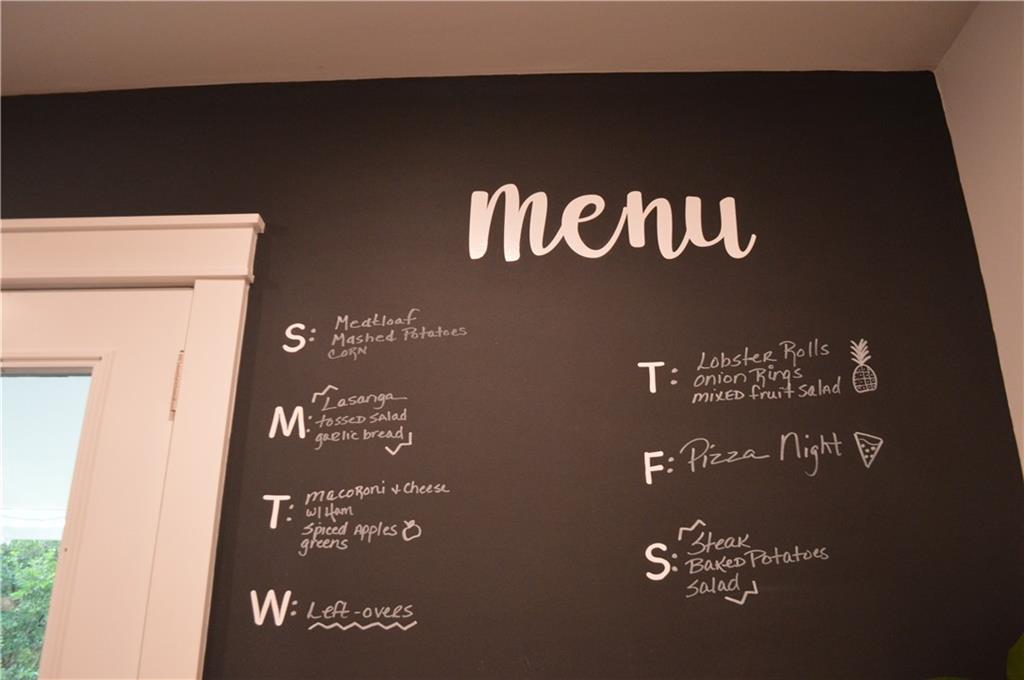 menu
S: Meatloaf
Mashed Potatoes
CORN
M: Lasanga
tossed salad
garlic bread
T: macoroni + cheese
w/ Ham
Spiced Apples
greens
W: Left-overs
T: Lobster Rolls
onion Rings
mixed fruit salad
F: Pizza Night
S: Steak
Baked Potatoes
salad